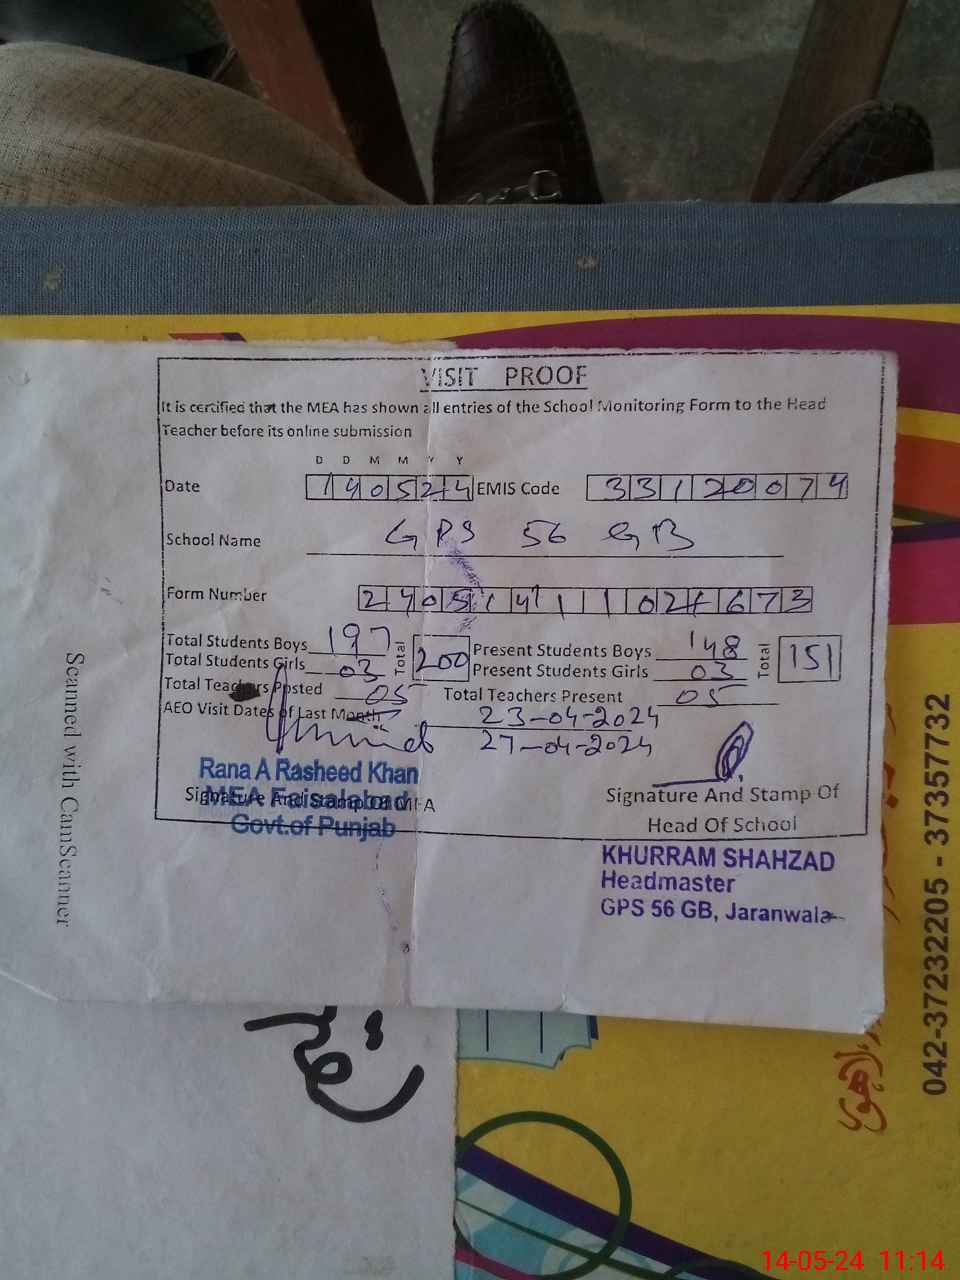 VISIT PROOF
It is certified that the MEA has shown all entries of the School Monitoring Form to the Head
Teacher before its online submission
D D M M Y Y
Date 140524 EMIS Code 33120074
School Name GPS 56 GB
Form Number
Total Students Boys 197 Total 200 Present Students Boys 148 Total 151
Total Students Girls 03 Present Students Girls 03
Total Teachers Posted 05 Total Teachers Present 05
AEO Visit Dates of Last Month 23-04-2024
27-04-2024
Rana A Rasheed Khan
MEA Faisalabad
Govt.of Punjab
Signature And Stamp Of MEA
Signature And Stamp Of
Head Of School
KHURRAM SHAHZAD
Headmaster
GPS 56 GB, Jaranwala
Scanned with CamScanner
042-37232205 - 37357732
14-05-24 11:14